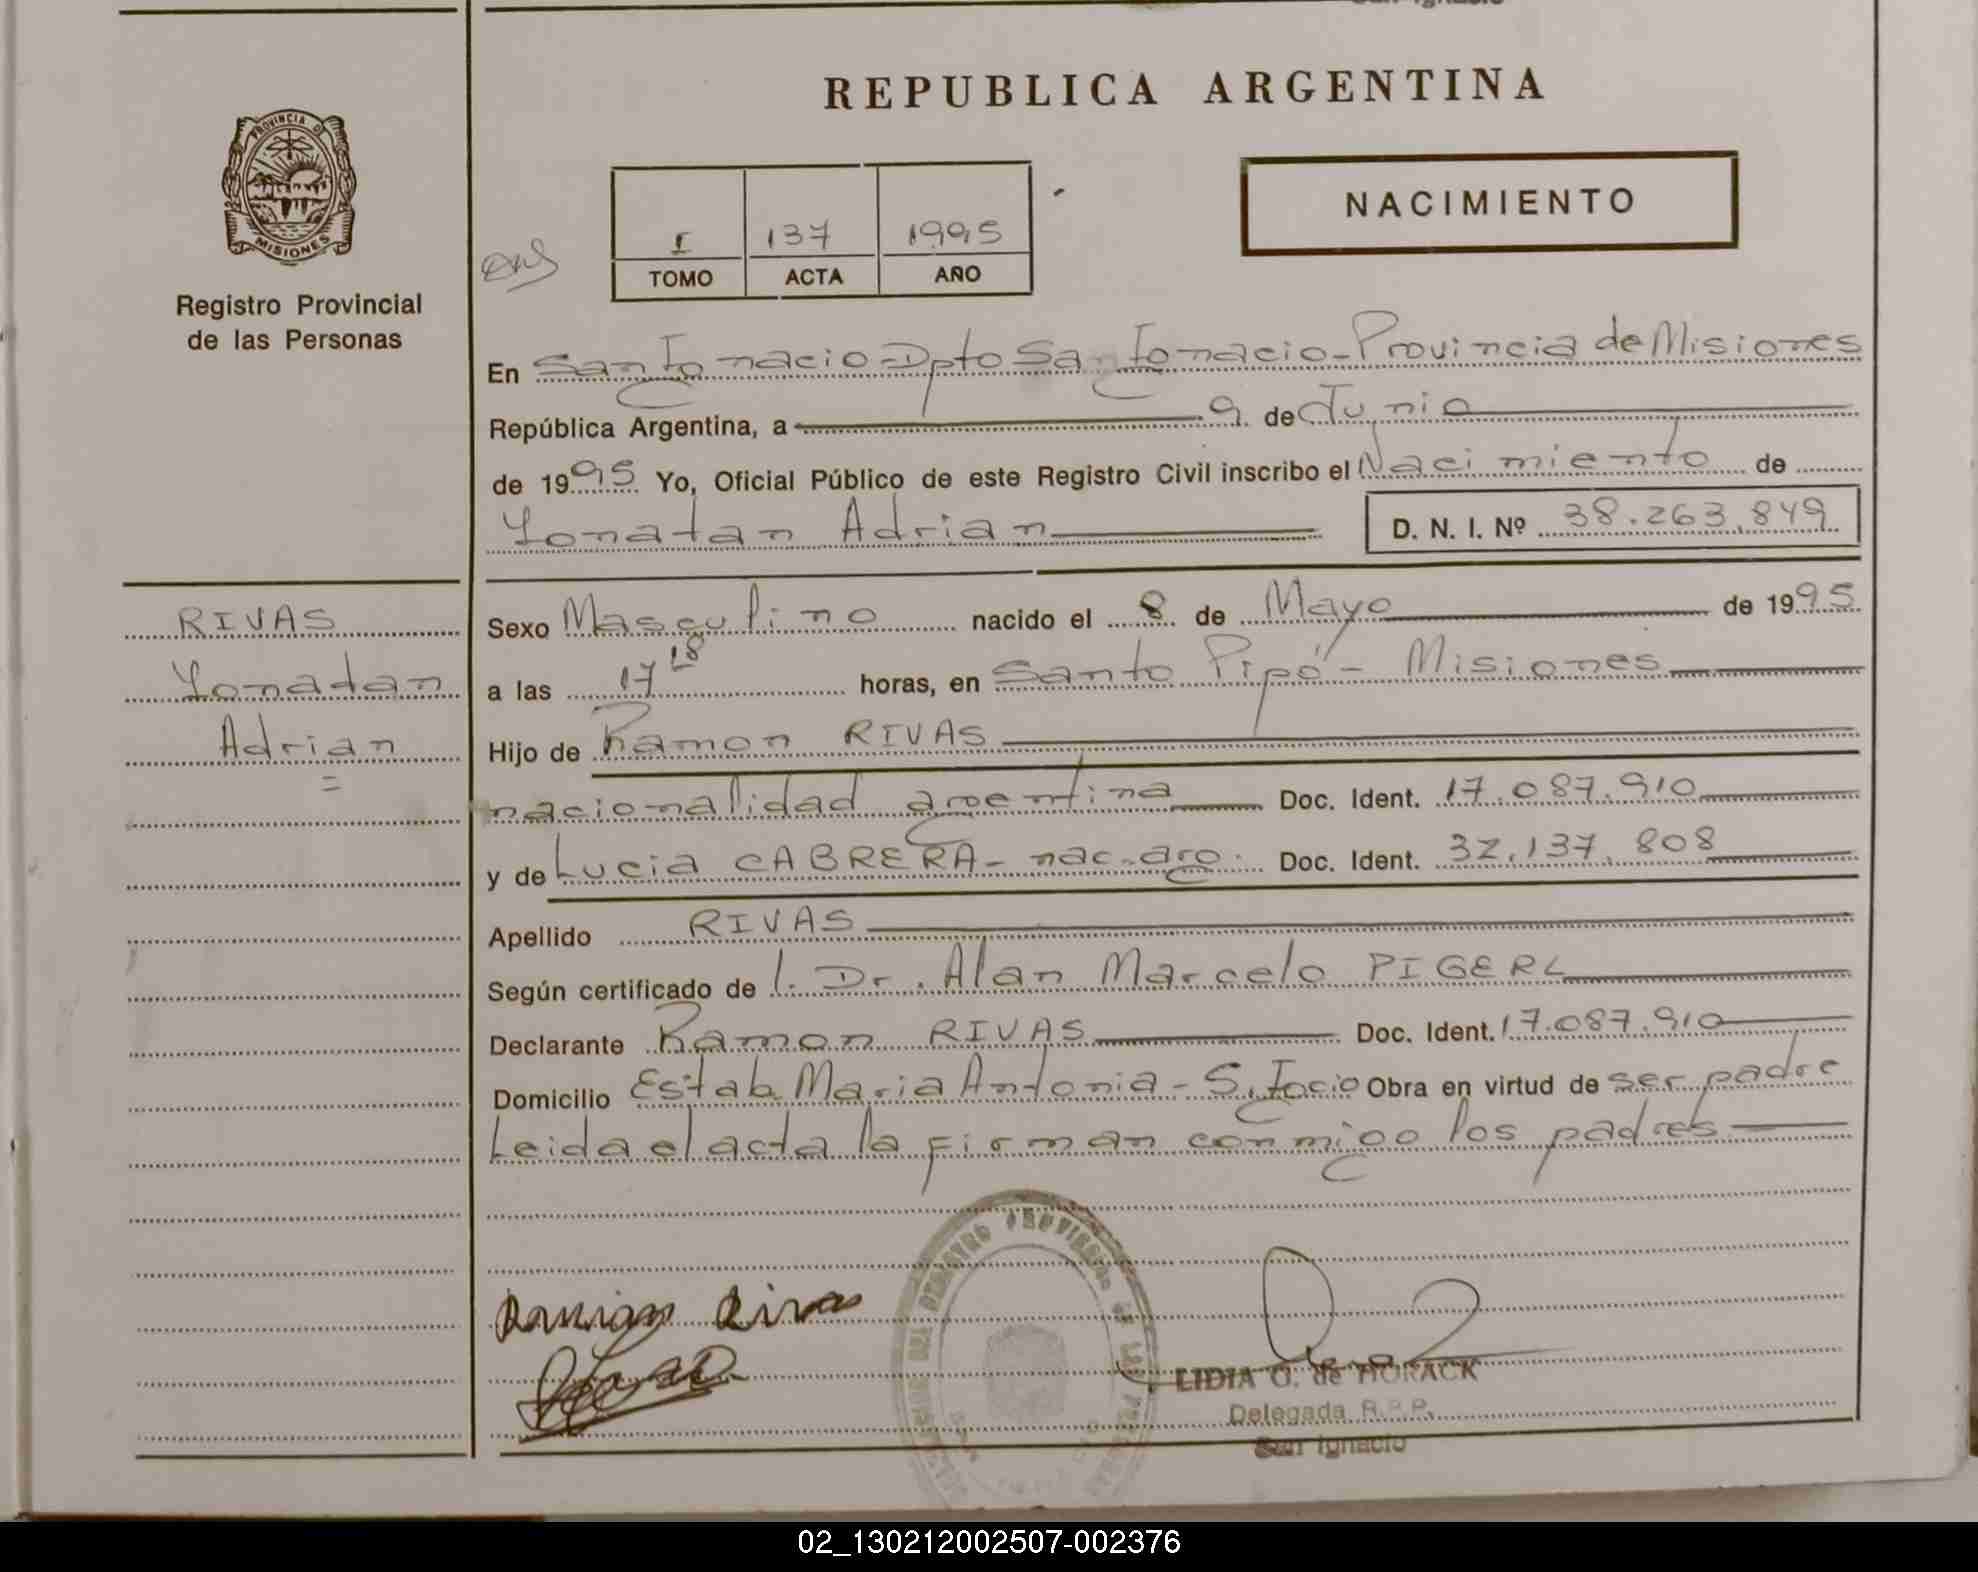 REPUBLICA ARGENTINA
NACIMIENTO
PROVINCIA DE
MISIONES
Registro Provincial
de las Personas
I 137 1995
TOMO ACTA AÑO
En San Ignacio - Dpto San Ignacio - Provincia de Misiones
República Argentina, a 9 de Junio
de 1995 Yo, Oficial Público de este Registro Civil inscribo el Nacimiento de
Yonatan Adrian D. N. I. Nº 38.263.849
RIVAS
Yonatan
Adrian
=
Sexo Masculino nacido el 8 de Mayo de 1995
a las 17 18 horas, en Santo Pipó - Misiones
Hijo de Ramon RIVAS
nacionalidad argentina Doc. Ident. 17.087.910
y de Lucia CABRERA - nac. arg. Doc. Ident. 32.137.808
Apellido RIVAS
Según certificado de l. Dr. Alan Marcelo PIGERL
Declarante Ramon RIVAS Doc. Ident. 17.087.910
Domicilio Estab. Maria Antonia - S. Igcio Obra en virtud de ser padre
Leida el acta la firman conmigo los padres
Rivas
LIDIA O. de HORACK
Delegada R.P.P.
San Ignacio
02_130212002507-002376